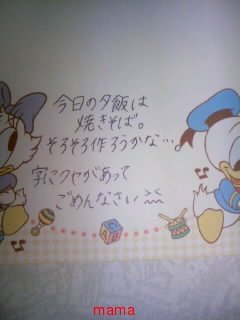 今日の夕飯は
焼きそば。
そろそろ作ろうかな…。
字にクセがあって
ごめんなさい
mama